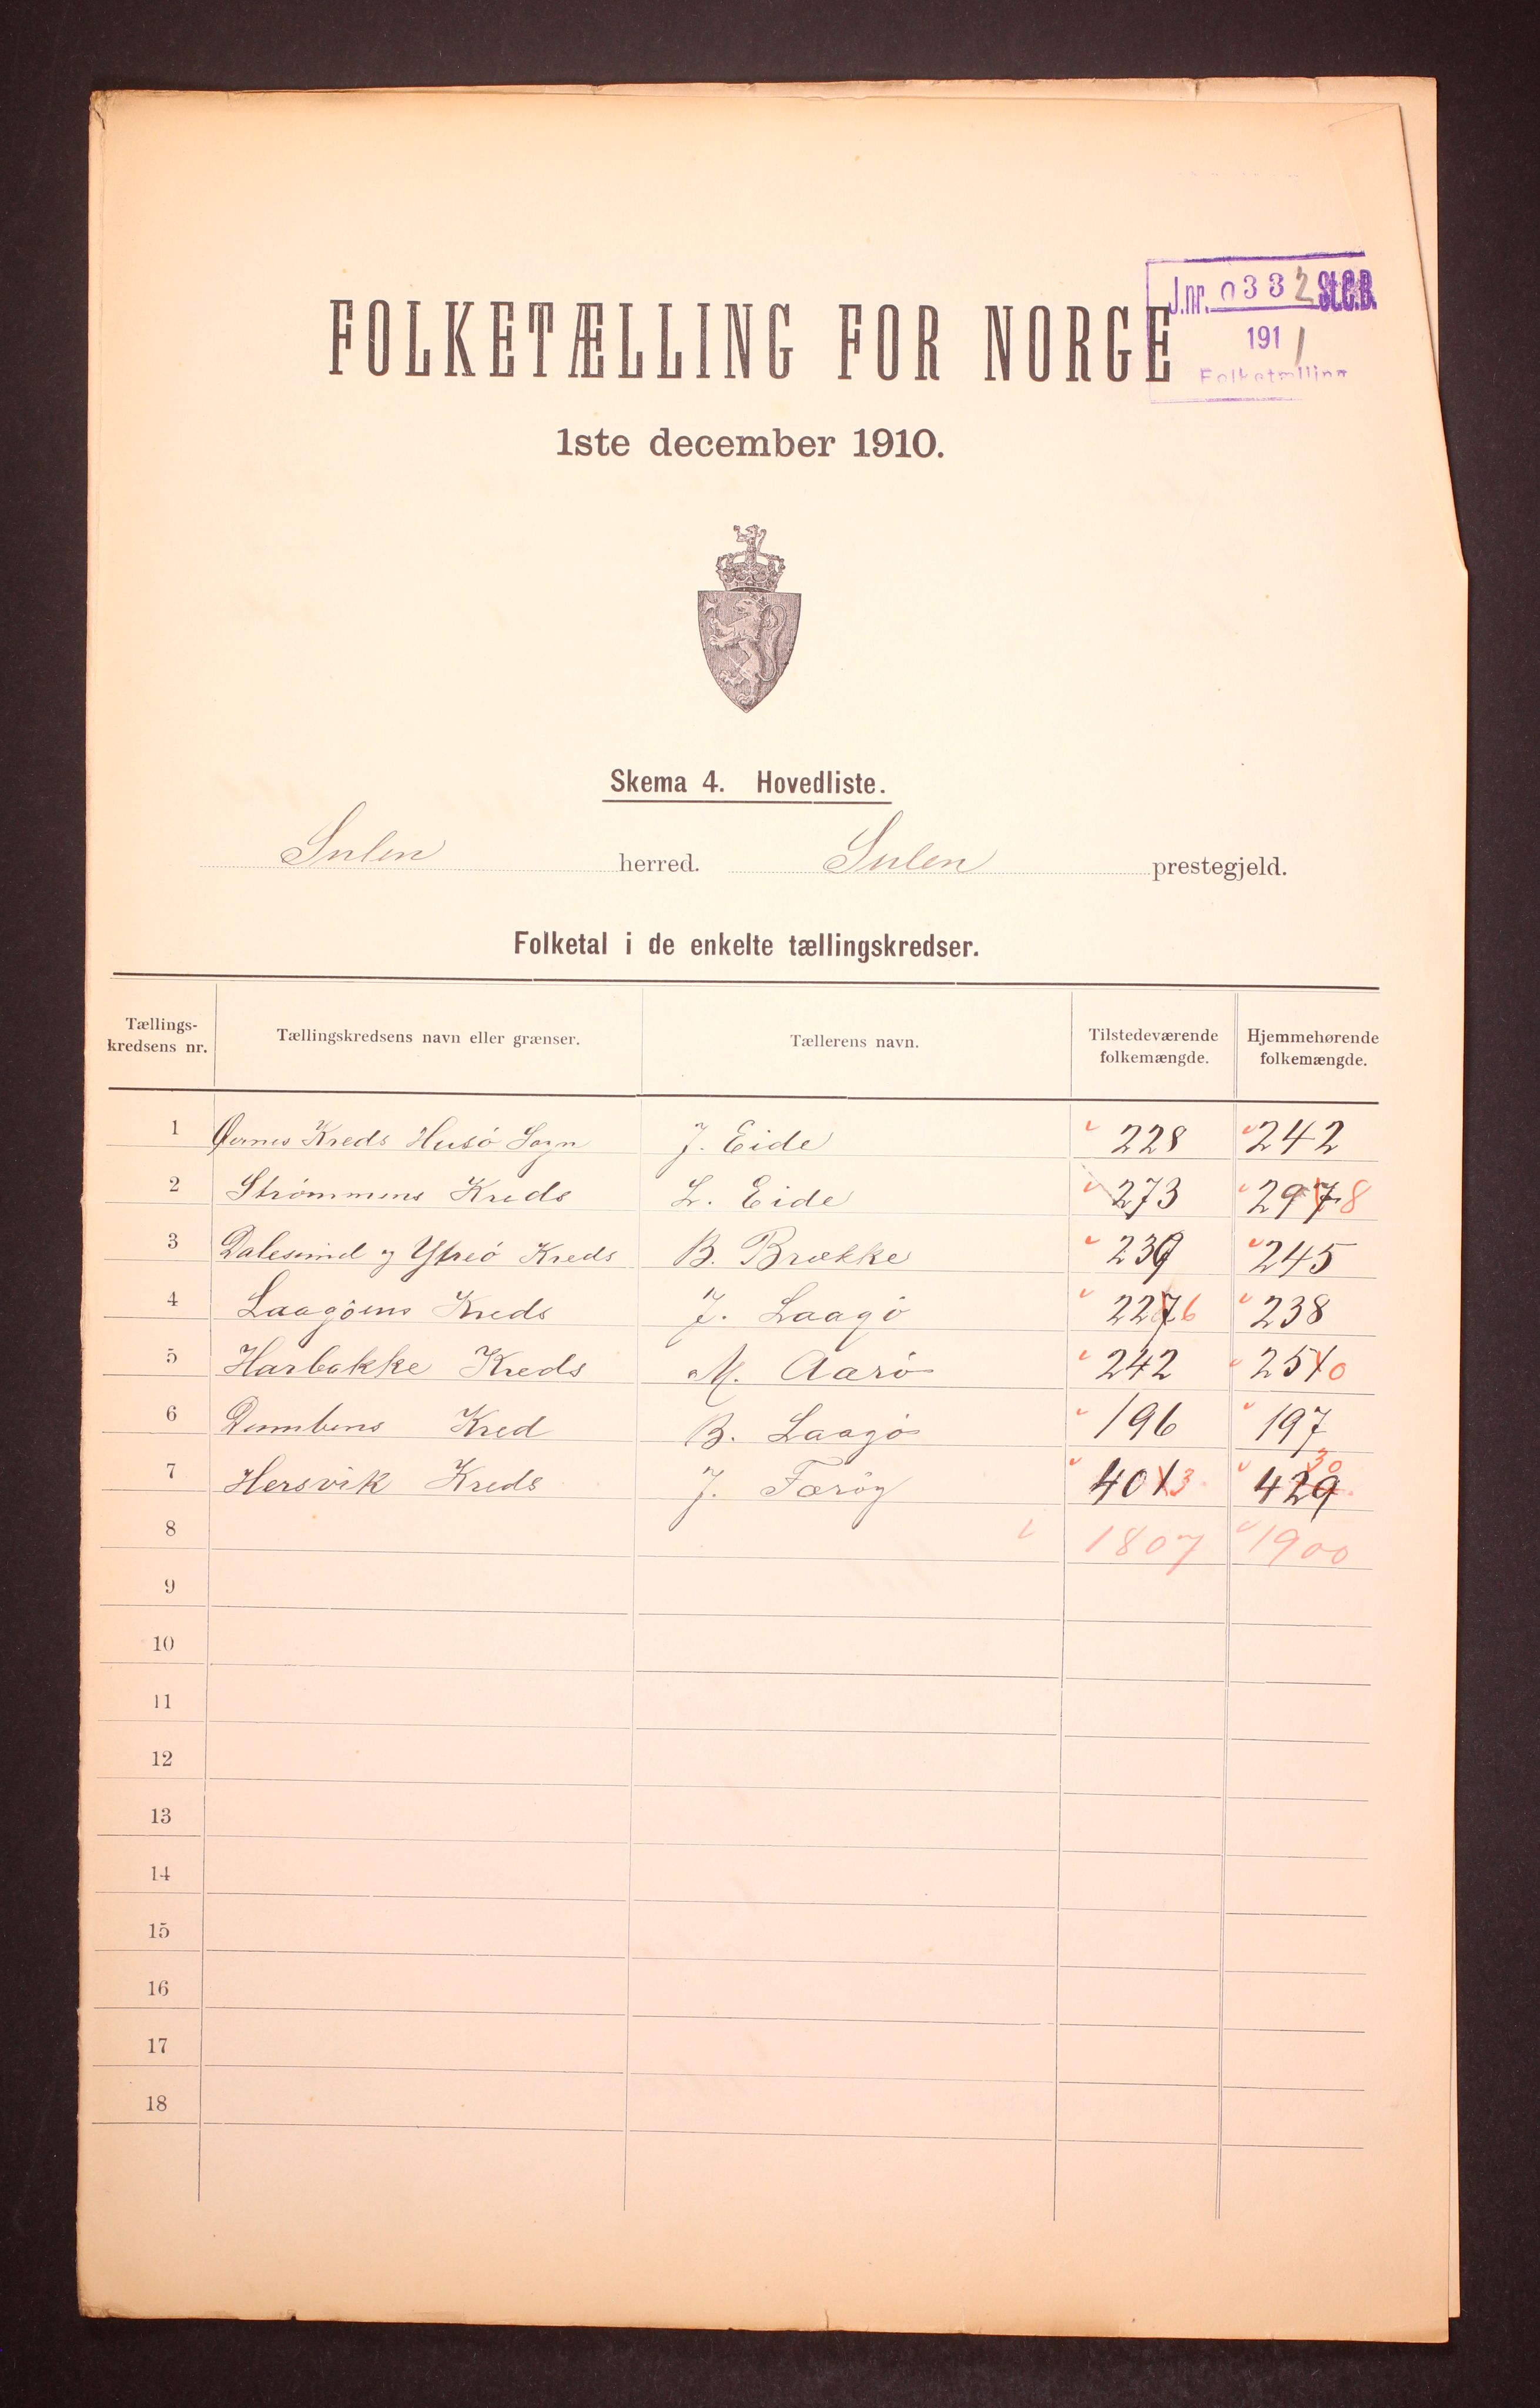 J.nr. 0332 St.C.B.
1911
Folketælling
FOLKETÆLLING FOR NORGE
1ste december 1910.
Skema 4. Hovedliste.
Sulen herred. Sulen prestegjeld.
Folketal i de enkelte tællingskredser.
Tællings-kredsens nr. Tællingskredsens navn eller grænser. Tællerens navn. Tilstedeværende folkemængde. Hjemmehørende folkemængde.
1 Kreds Husö Sogn J. Eide 228 242
2 Strömmens Kreds L. Eide 273 297 8
3 Dalesund og Ytreö Kreds B. Brække 239 245
4 Laagöens Kreds J. Laagö 227 6 238
5 Harbakke Kreds M. Aarö 242 251 0
6 Kred B. Laagö 196 197
7 Hersvik Kreds J. Færöy 401 3 429 30
8 1807 1900
9
10
11
12
13
14
15
16
17
18